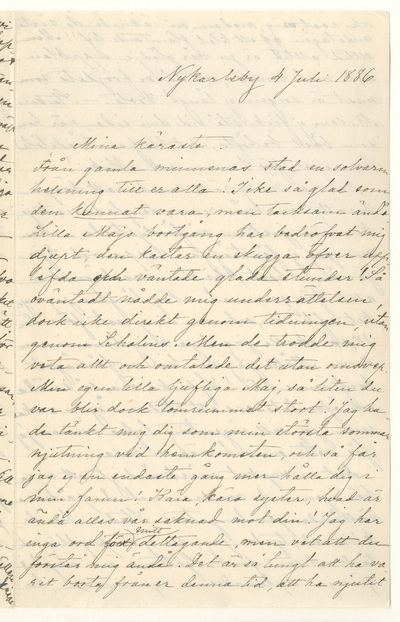 Nykarleby 4 Juli 1886
Mina käraste!
Från gamla minnenas stad en solvarm
helsning till er alla! Icke så glad som
den kunnat vara, men tacksam ändå.
Lilla Majs bortgång har bedröfvat mig
djupt, den kastar en skugga öfver upp-
lefda och väntade glada stunder! Så
oväntadt nådde mig underrättelsen
dock icke direkt genom tidningen, utan
genom Schalins. Men de trodde mig
veta allt och omtalade det utan omsvep.
Min egen lilla ljufliga Maj, så liten du
var blir dock tomrummet stort! Jag ha-
de tänkt mig dig som min största sommar
njutning vid hemkomsten, och så får
jag ej en endaste gång mer hålla dig i
min famn! Kära, kära syster, hvad är
ändå allas vår saknad mot din! Jag har
inga ord för mitt deltagande, men vet att du
förstår mig ändå. Det är så tungt att ha va-
rit borta från er denna tid, att ha njutit